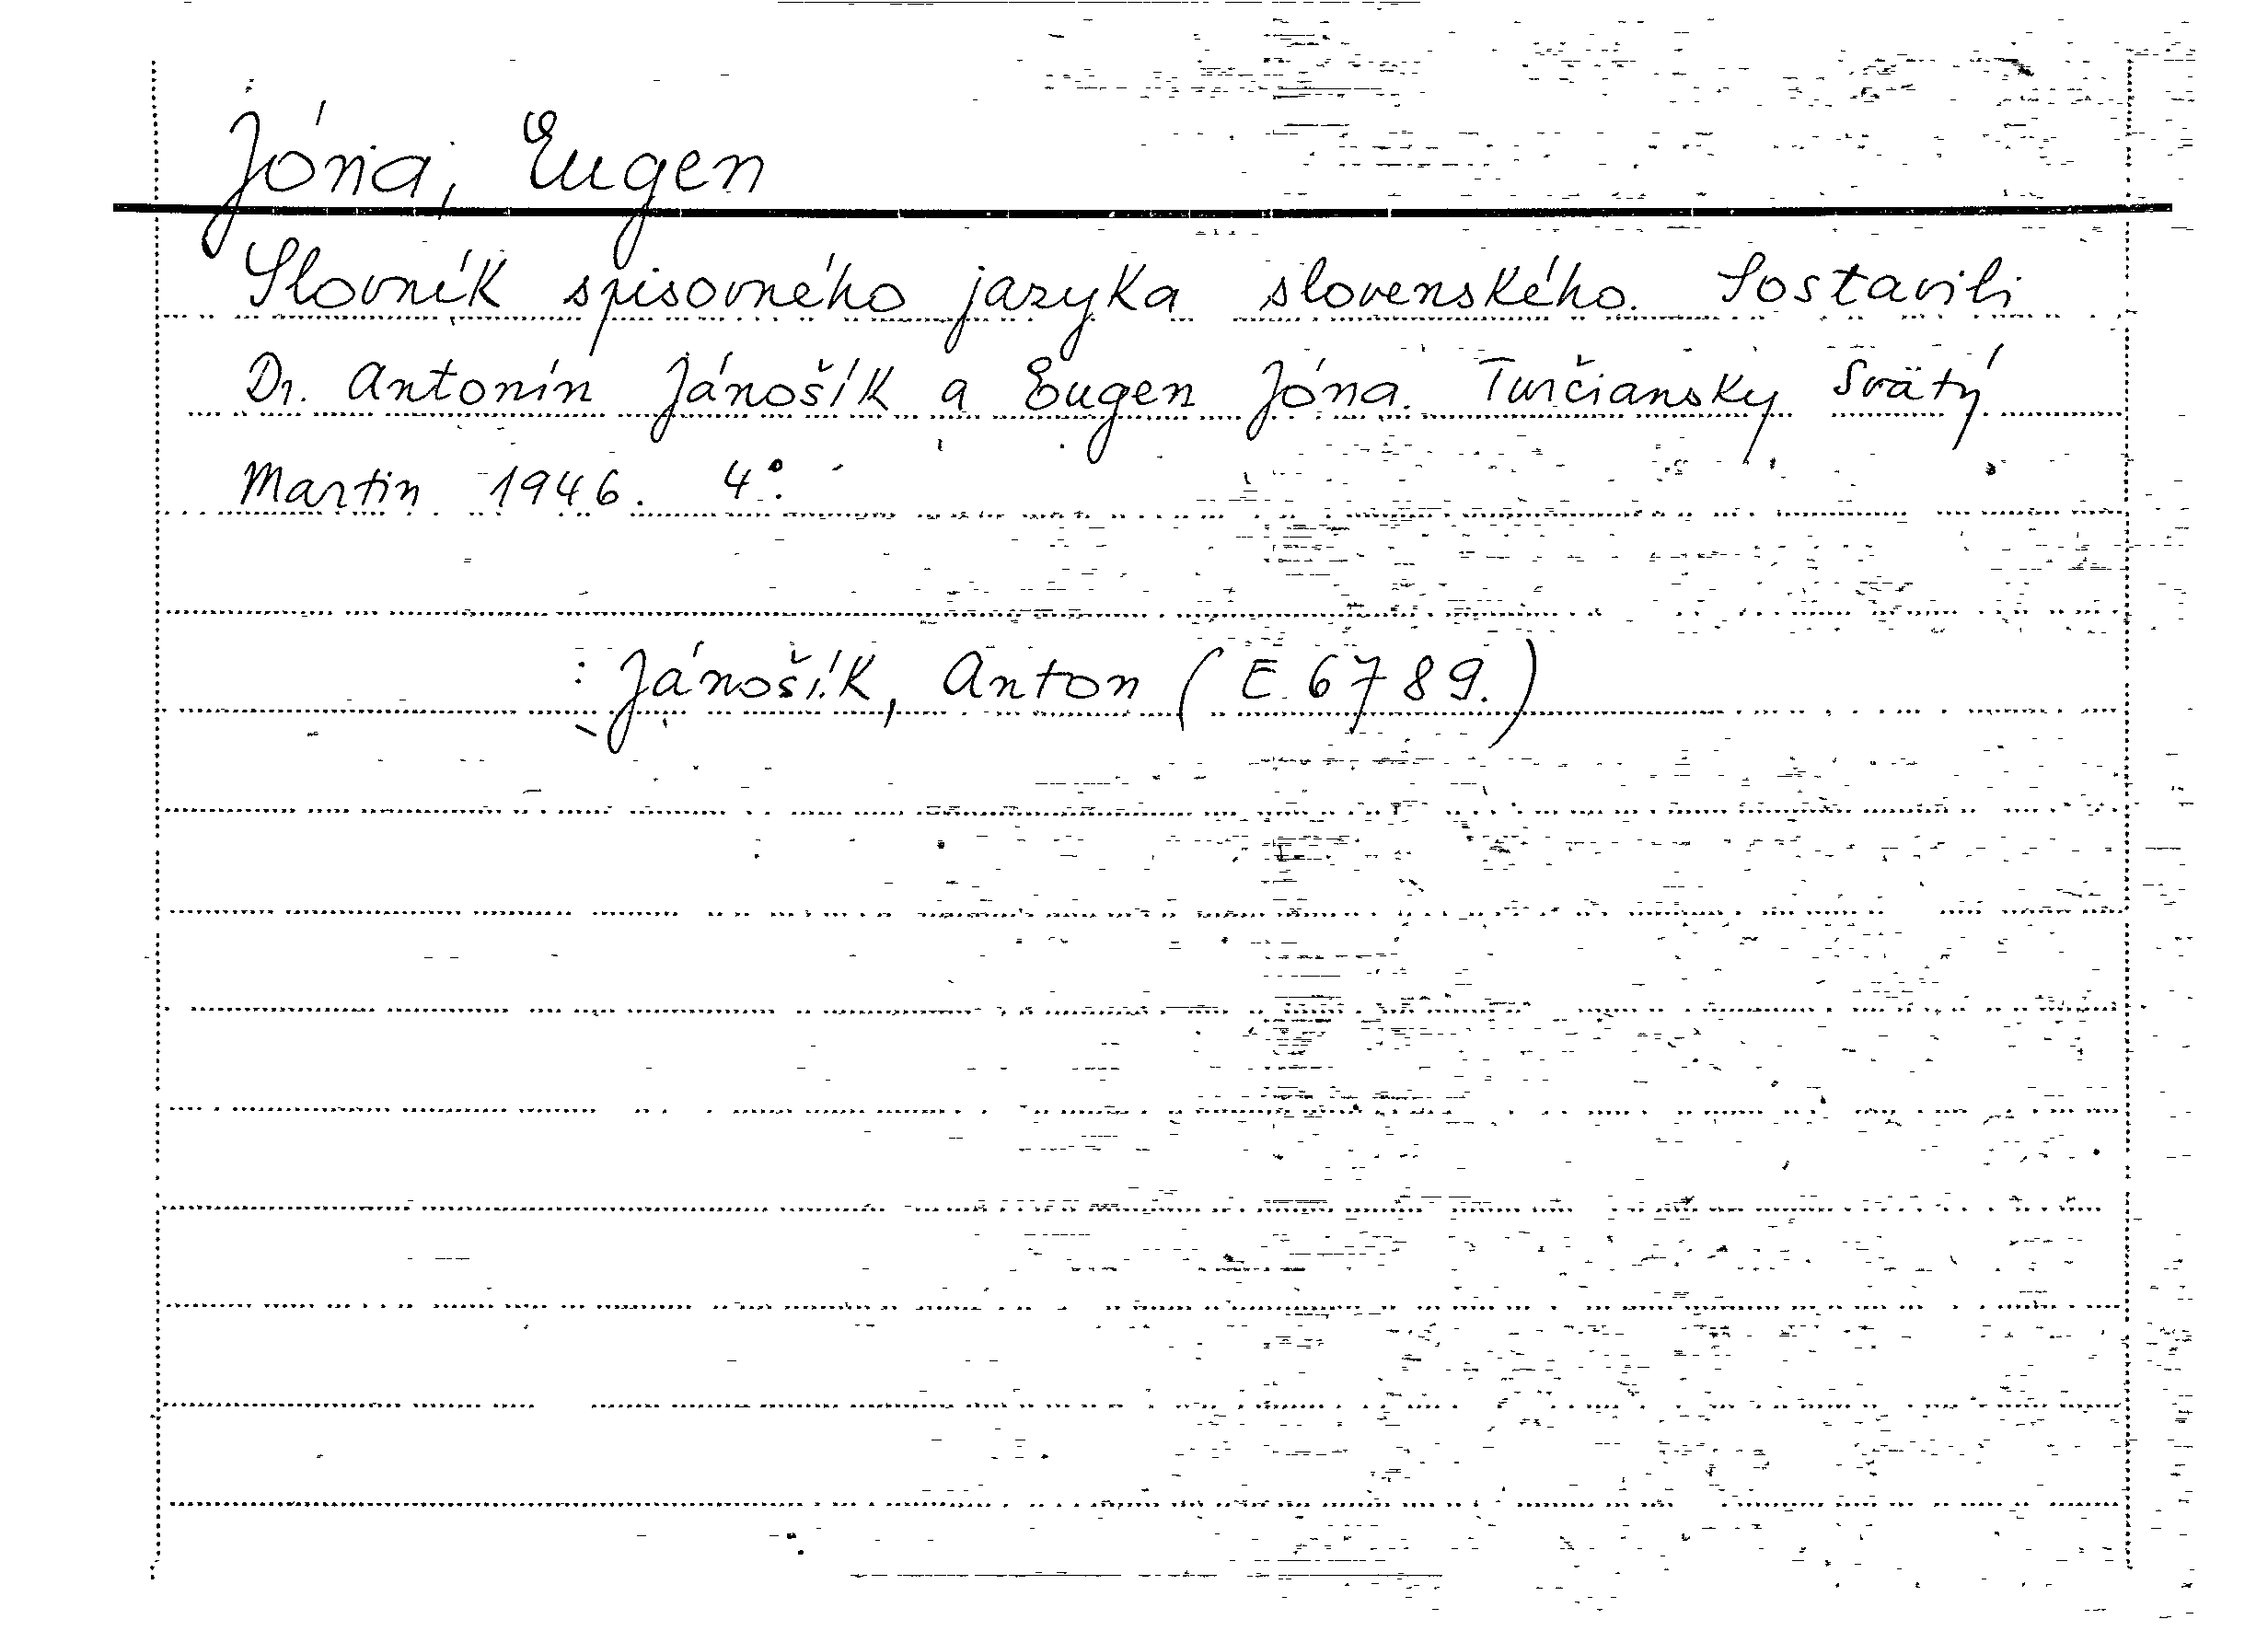 Jóna, Eugen
Slovník spisovného jazyka slovenského. Sostavili
Dr. Antonín Jánošík a Eugen Jóna. Turčiansky Svätý
Martin 1946. 4°.
: Jánošík, Anton (E 6789.)